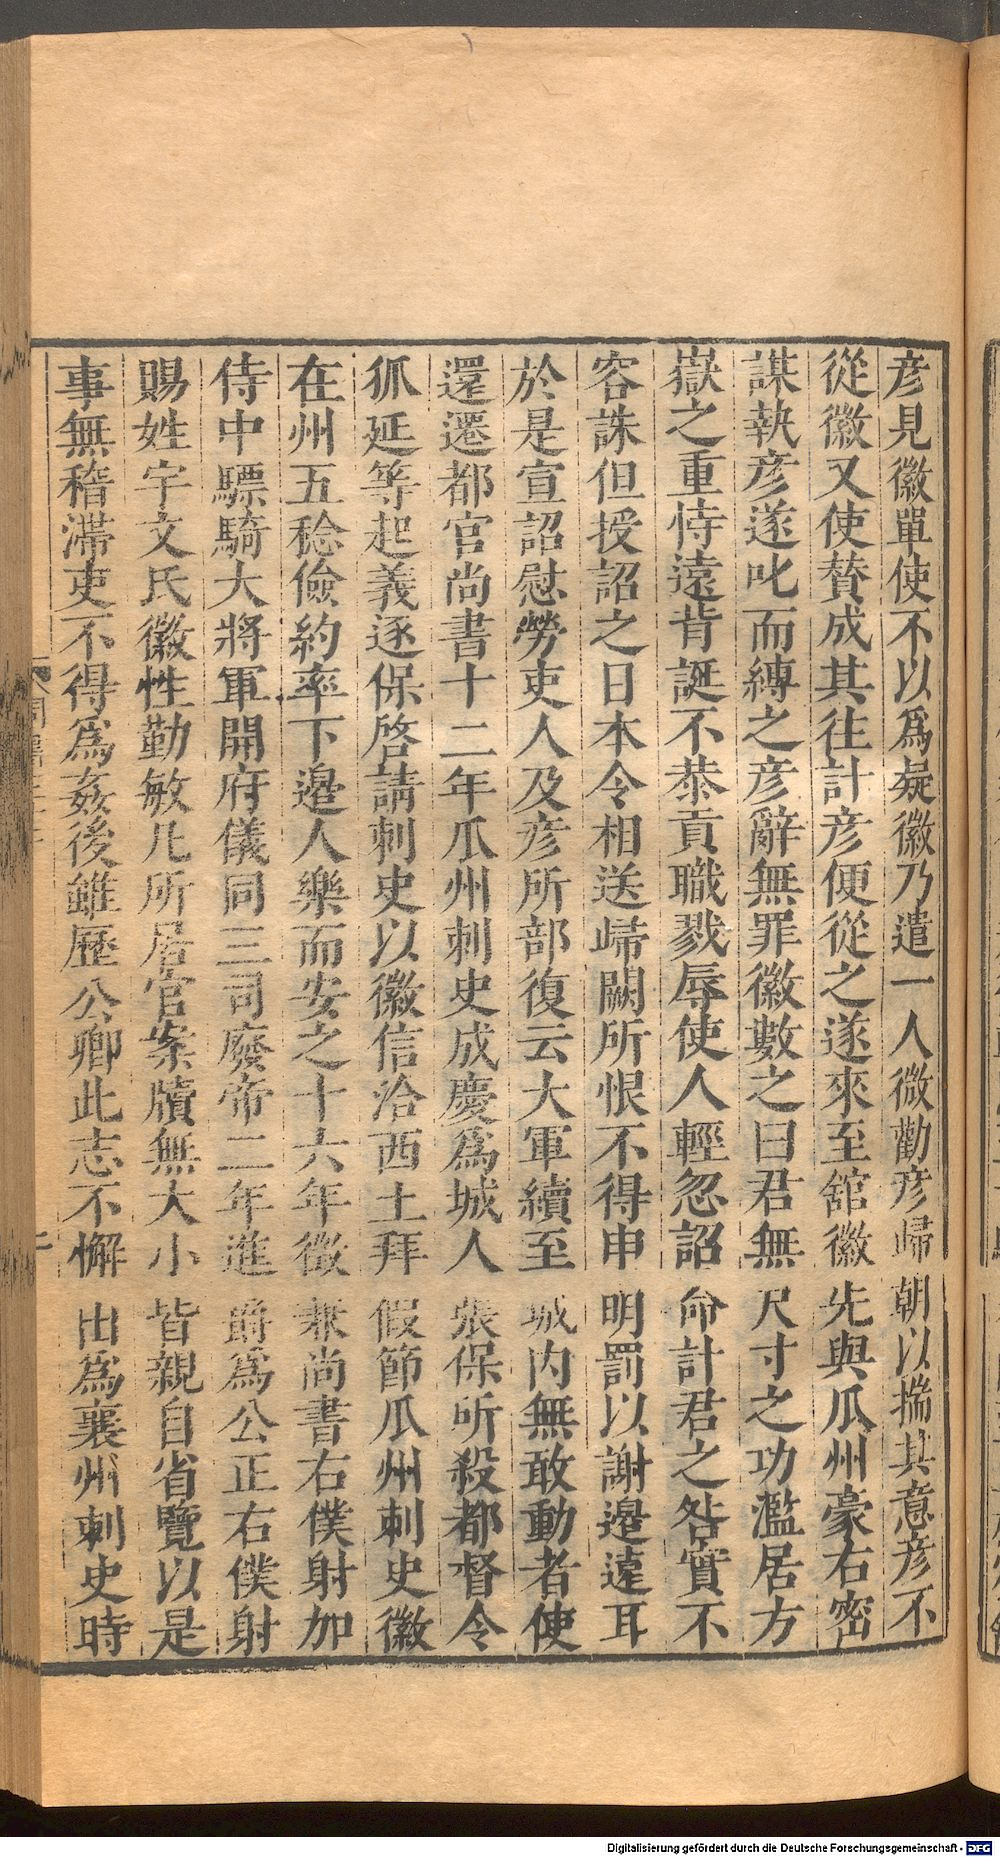 彦見徽單使不以爲疑徽乃遣一人微勸彦歸朝以揣其意彦不
從徽又使賛成其往計彦便從之遂來至舘徽先與瓜州豪右密
謀執彦遂叱而縛之彦辭無罪徽數之曰君無尺寸之功濫居方
嶽之重恃遠背誕不恭貢職戮辱使人輕忽詔命計君之咎實不
容誅但授詔之日本令相送歸闕所恨不得申明罰以謝邉遠耳
於是宣詔慰勞吏人及彦所部復云大軍續至城内無敢動者使
還遷都官尚書十二年瓜州刺史成慶爲城人張保所殺都督令
狐延等起義逐保啓請刺史以徽信洽西土拜假節瓜州刺史徽
在州五稔儉約率下邉人樂而安之十六年徴兼尚書右僕射加
侍中驃騎大將軍開府儀同三司廢帝二年進爵爲公正右僕射
賜姓宇文氏徽性勤敏凡所居官案牘無大小皆親自省覽以是
事無稽滯吏不得爲姦後雖歷公卿此志不懈出爲襄州刺史時
Digitalisierung gefördert durch die Deutsche Forschungsgemeinschaft - DFG